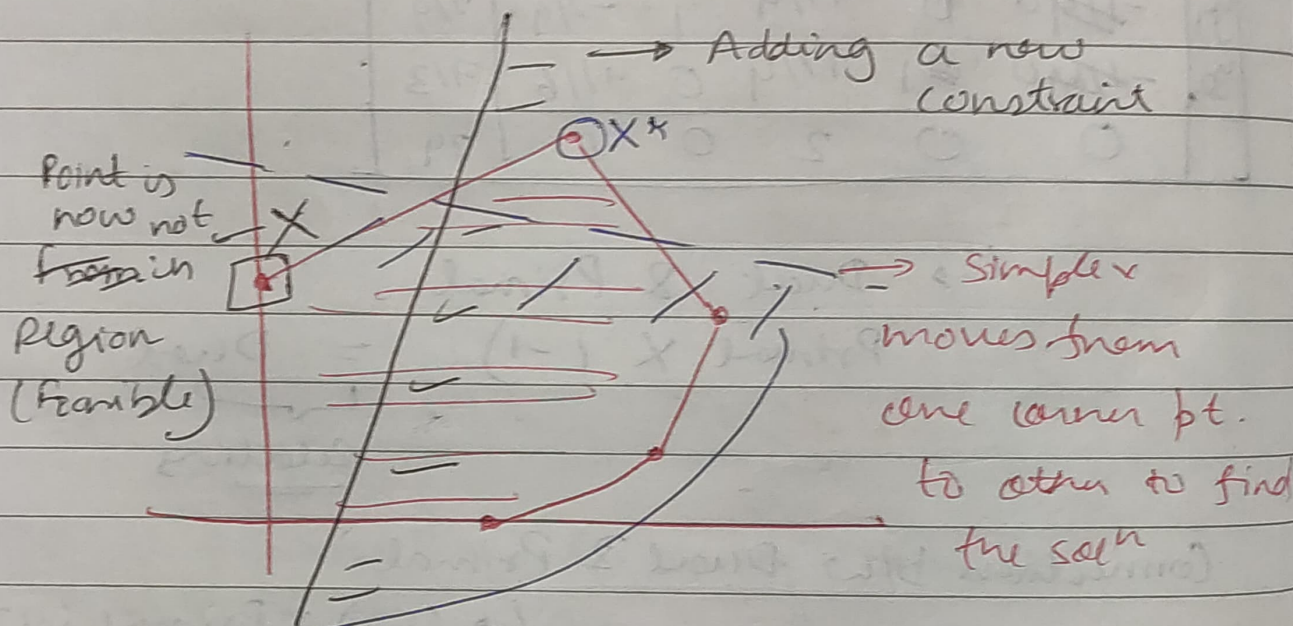 → Adding a new
constraint.
X*
Point is
now not
in
Region
(Feasible)
X
→ Simplex
moves from
one corner pt.
to other to find
the solⁿ